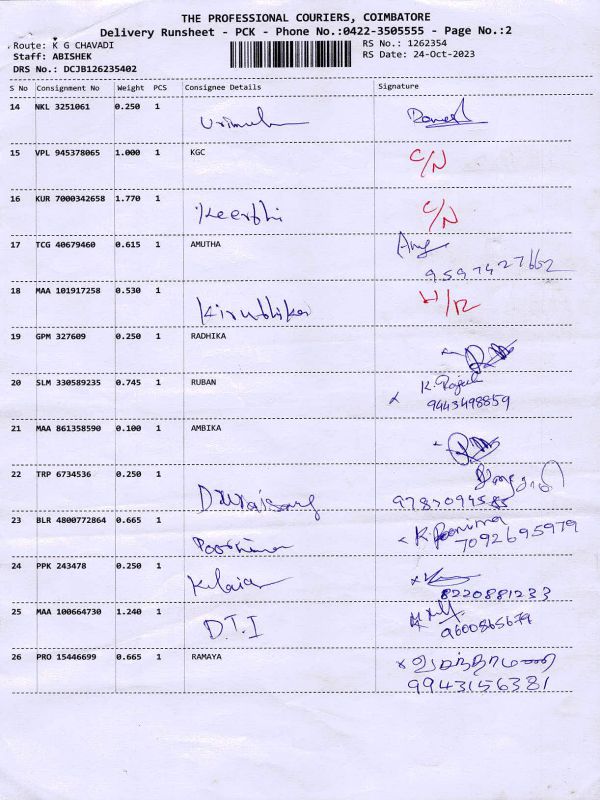 THE PROFESSIONAL COURIERS, COIMBATORE
Delivery Runsheet - PCK - Phone No.:0422-3505555 - Page No.:2
Route: K G CHAVADI
Staff: ABISHEK
DRS No.: DCJB126235402
RS No.: 1262354
RS Date: 24-Oct-2023
S No Consignment No Weight PCS Consignee Details Signature
14 NKL 3251061 0.250 1
15 VPL 945378065 1.000 1 KGC C/N
16 KUR 7000342658 1.770 1 Keerthi C/N
17 TCG 40679460 0.615 1 AMUTHA
9597427662
18 MAA 101917258 0.530 1 Kiruthika
19 GPM 327609 0.250 1 RADHIKA
20 SLM 330589235 0.745 1 RUBAN K. Rajesh
9443498859
21 MAA 861358590 0.100 1 AMBIKA
22 TRP 6734536 0.250 1
23 BLR 4800772864 0.665 1 Poornima K. Poonima
7092695979
24 PPK 243478 0.250 1
8220881233
25 MAA 100664730 1.240 1 D.T.I
9600865679
26 PRO 15446699 0.665 1 RAMAYA x வசந்தாமணி
9943156381